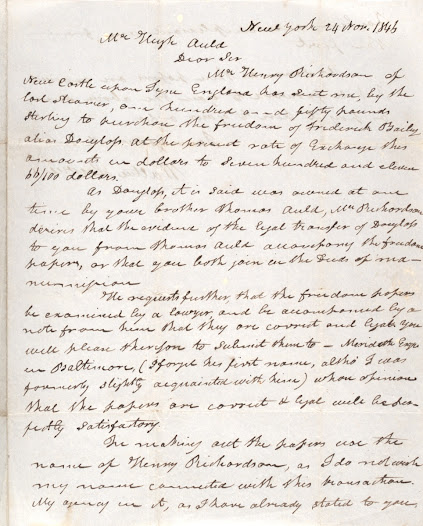 New York 24 Nov. 1846
Mr Hugh Auld
Dear Sir
Mr Henry Richardson of
New Castle upon Tyne England has sent me, by the
last steamer, one hundred and fifty pounds
sterling to purchase the freedom of Frederick Bailey
alias Douglass. At the present rate of Exchange this
amounts in dollars to Seven hundred and eleven
66/100 dollars.
As Douglass, it is said was owned at one
time by your brother Thomas Auld, Mr Richardson
desires that the evidence of the legal transfer of Douglass
to you from Thomas Auld accompany the freedom
papers, or that you both join in the Deeds of ma-
numission
He requests further, that the freedom papers
be examined by a lawyer and be accompanied by a
note from him that they are correct and legal. You
will please therefore to submit them to — Meredith Esqr
in Baltimore, (I forget his first name, altho' I was
formerly slightly acquainted with him) whose opinion
that the papers are correct & legal will be per-
fectly satisfactory.
In making out the papers use the
name of Henry Richardson, as I do not wish
my name connected with this transaction.
My agency in it, as I have already stated to you